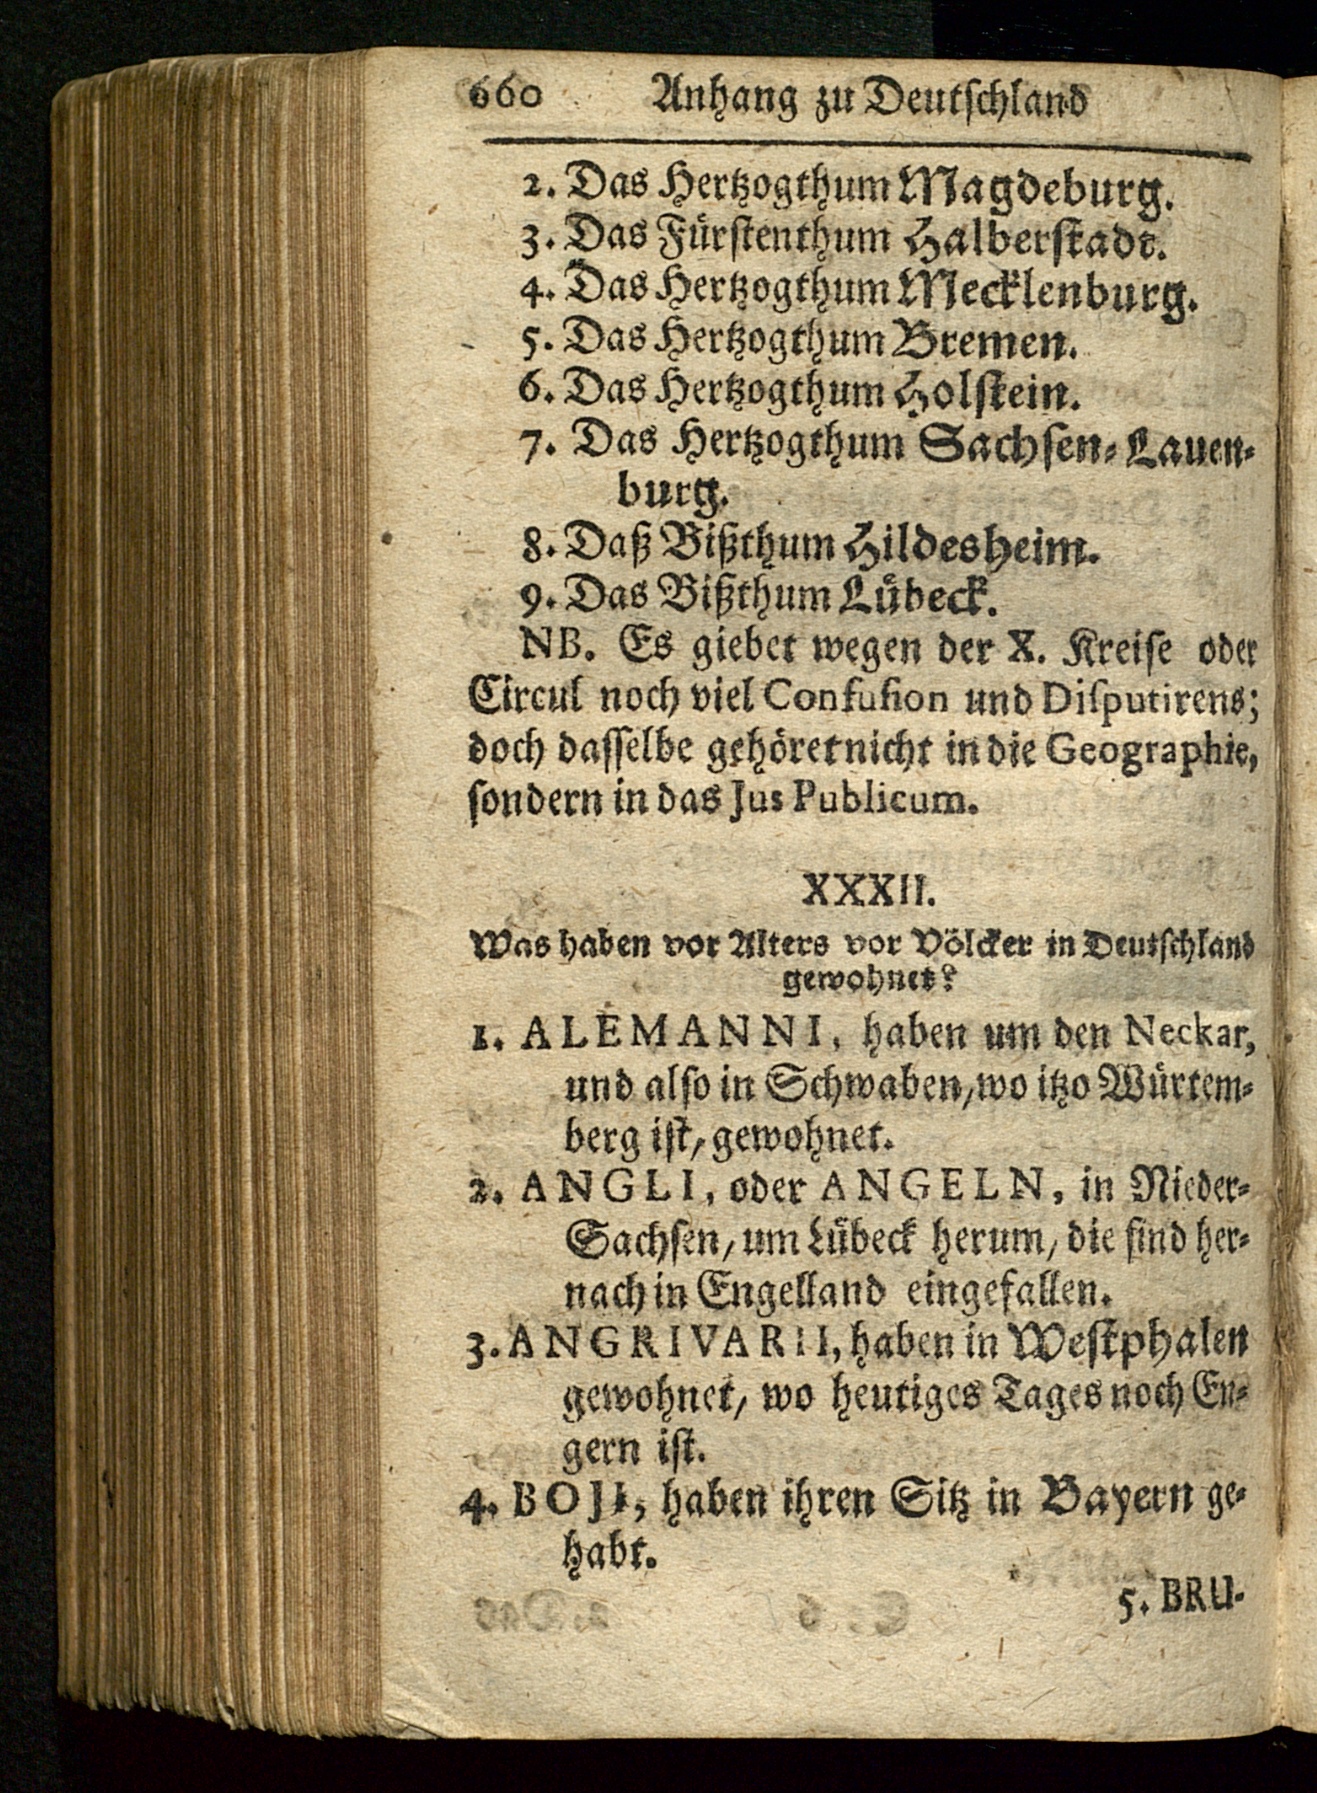 660 Anhang zu Deutschland
2. Das Hertzogthum Magdeburg.
3. Das Fürstenthum Halberstadt.
4. Das Hertzogthum Mecklenburg.
5. Das Hertzogthum Bremen.
6. Das Hertzogthum Holstein.
7. Das Hertzogthum Sachsen-Lauen-
burg.
8. Daß Bißthum Hildesheim.
9. Das Bißthum Lübeck.
NB. Es giebet wegen der X. Kreise oder
Circul noch viel Confusion und Disputirens;
doch dasselbe gehöret nicht in die Geographie,
sondern in das Jus Publicum.
XXXII.
Was haben vor Alters vor Völcker in Deutschland
gewohnet?
1. ALEMANNI, haben um den Neckar,
und also in Schwaben, wo itzo Würtem-
berg ist, gewohnet.
2. ANGLI, oder ANGELN, in Nieder-
Sachsen, um Lübeck herum, die sind her-
nach in Engelland eingefallen.
3. ANGRIVARII, haben in Westphalen
gewohnet, wo heutiges Tages noch En-
gern ist.
4. BOJI, haben ihren Sitz in Bayern ge-
habt.
5. BRU-